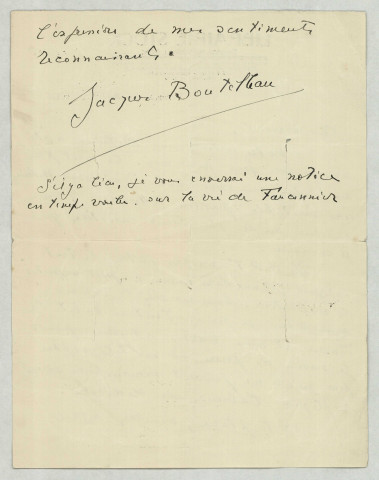 l'expression de mes sentiments
reconnaissants.
Jacques Boutelleau
S'il y a lieu, je vous enverrai une notice
en temps voulu sur la vie de Fauconnier